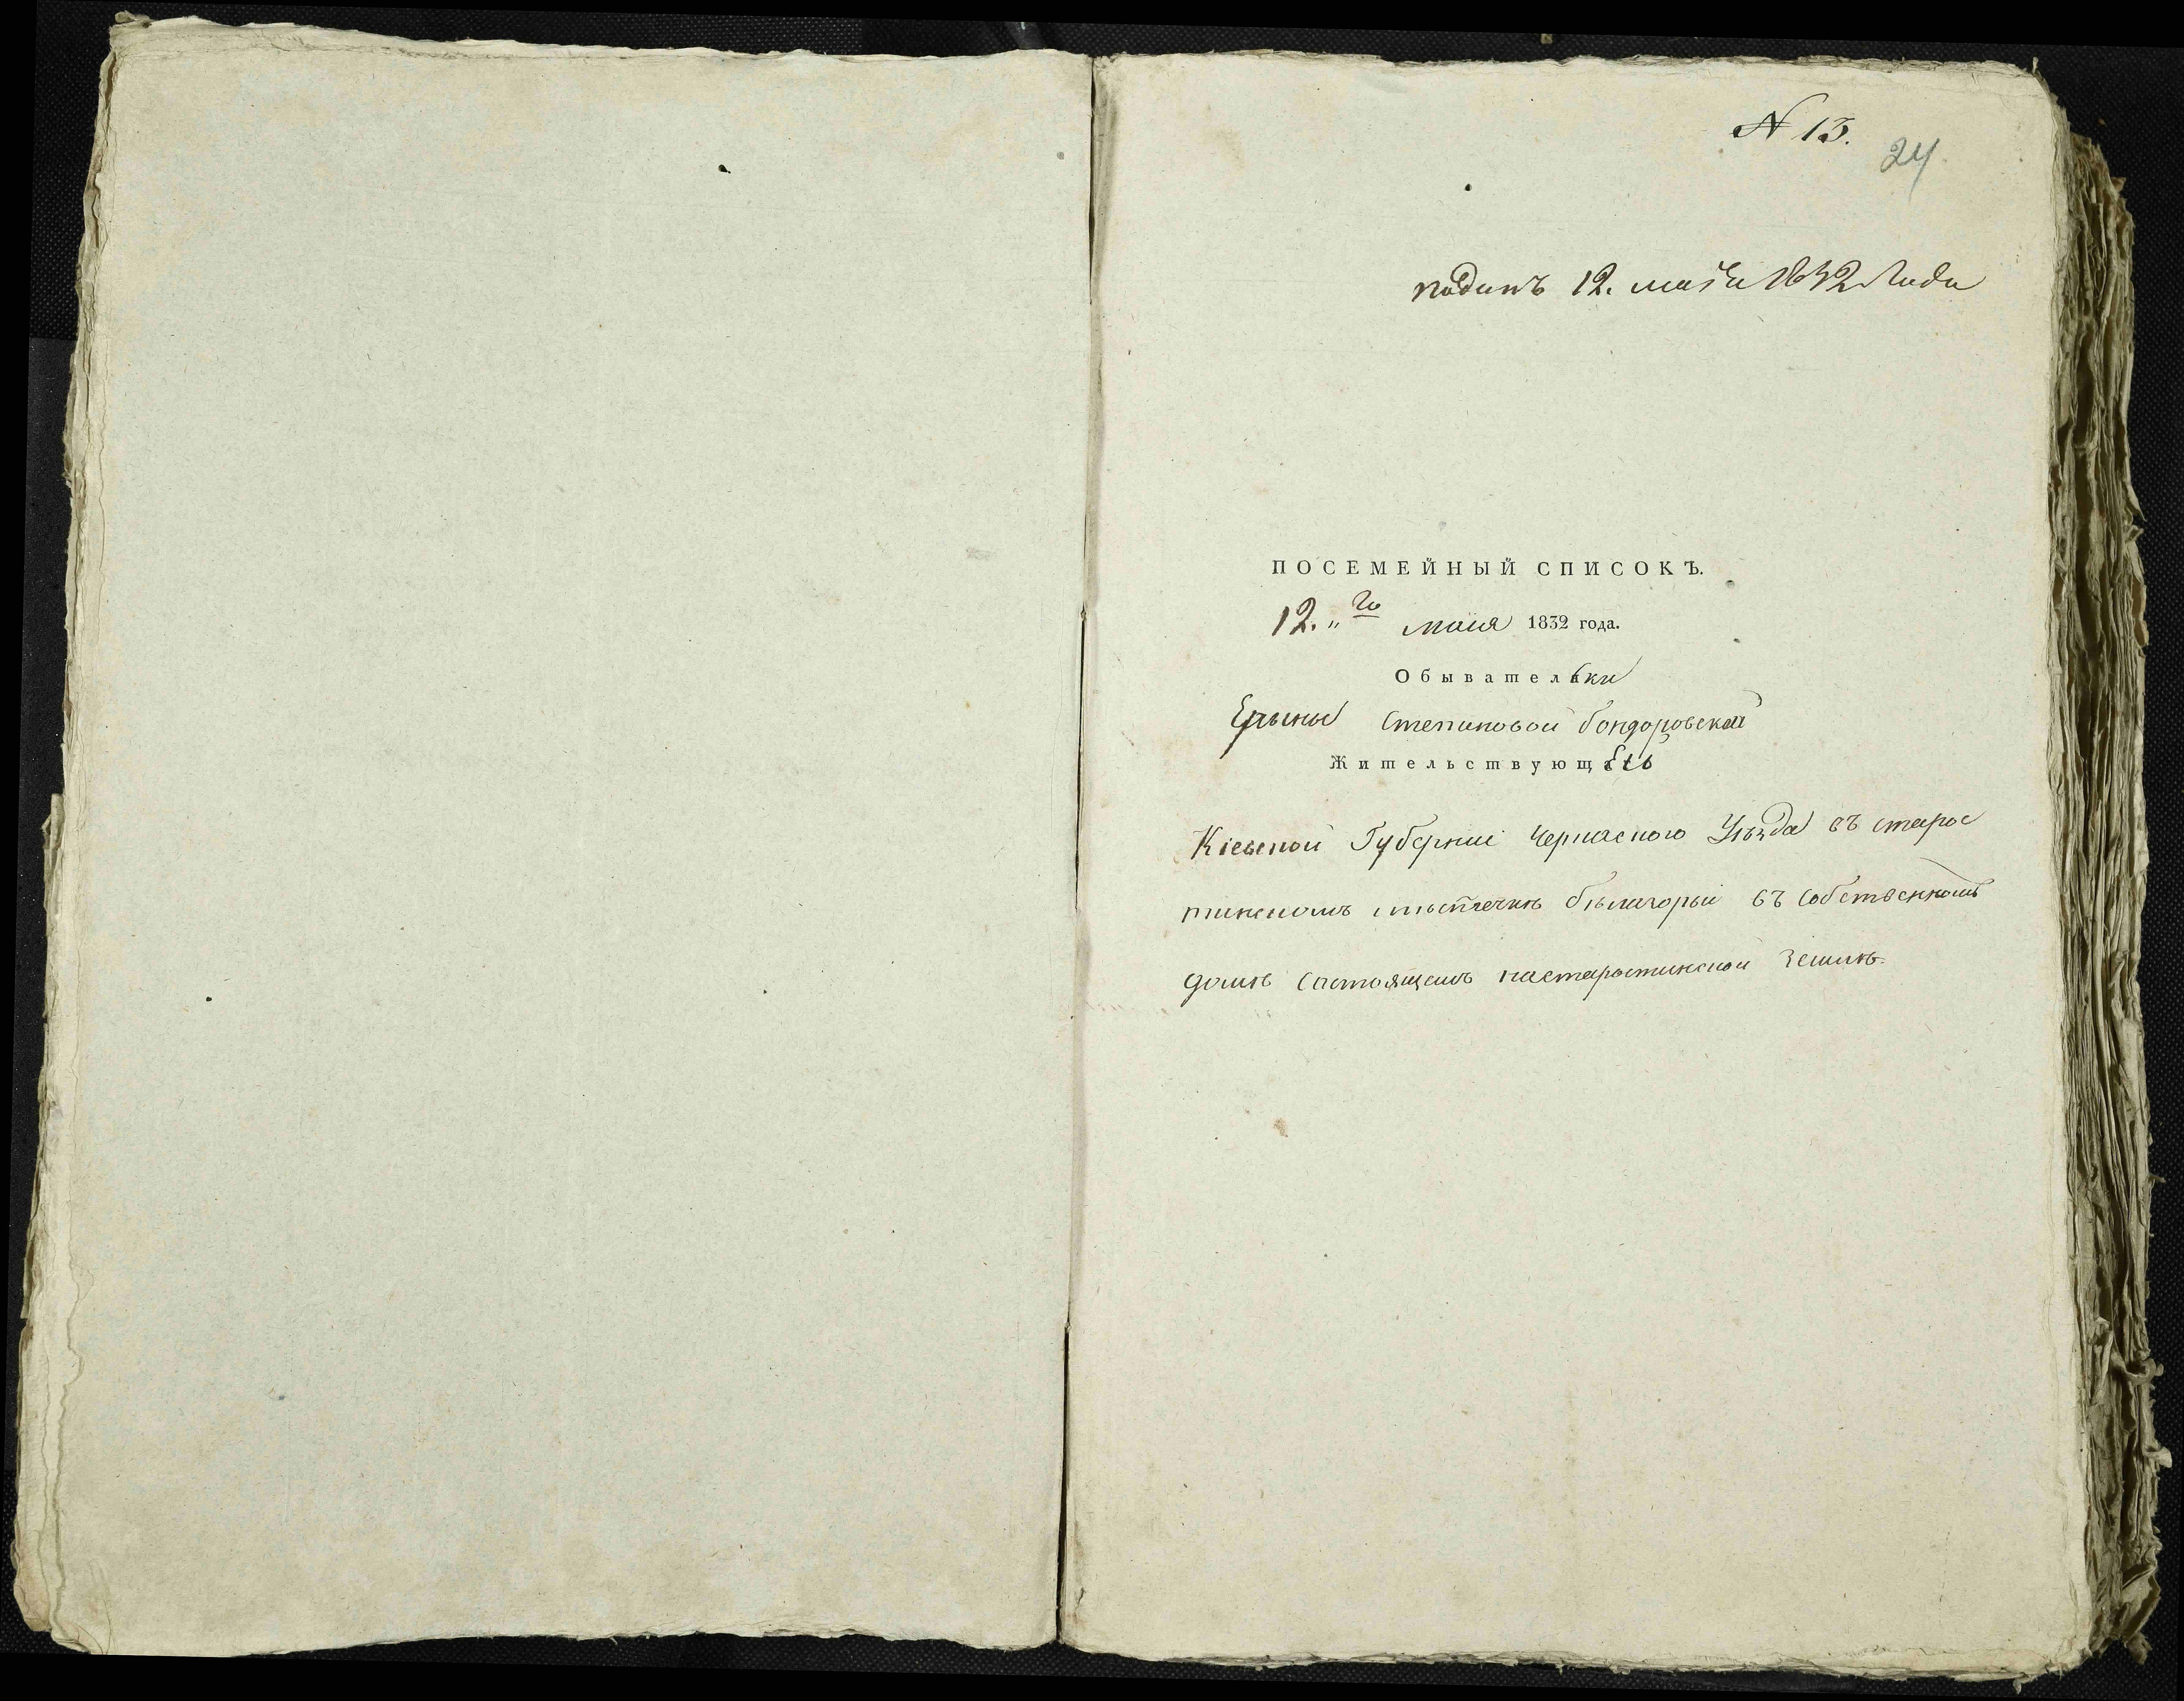 N 13.
24
поданъ 12. маія 1832 года
ПОСЕМЕЙНЫЙ СПИСОКЪ.
12."го маія 1832 года.
Обывательки
Ерыны Степановой бондоровской
Жительствующей
Кіевской Губерніи Черкаского Уѣзда въ старос
тинскомъ мѣстечкѣ бѣлазорьи въ собственномъ
домѣ состоящемъ настаростинской землѣ.